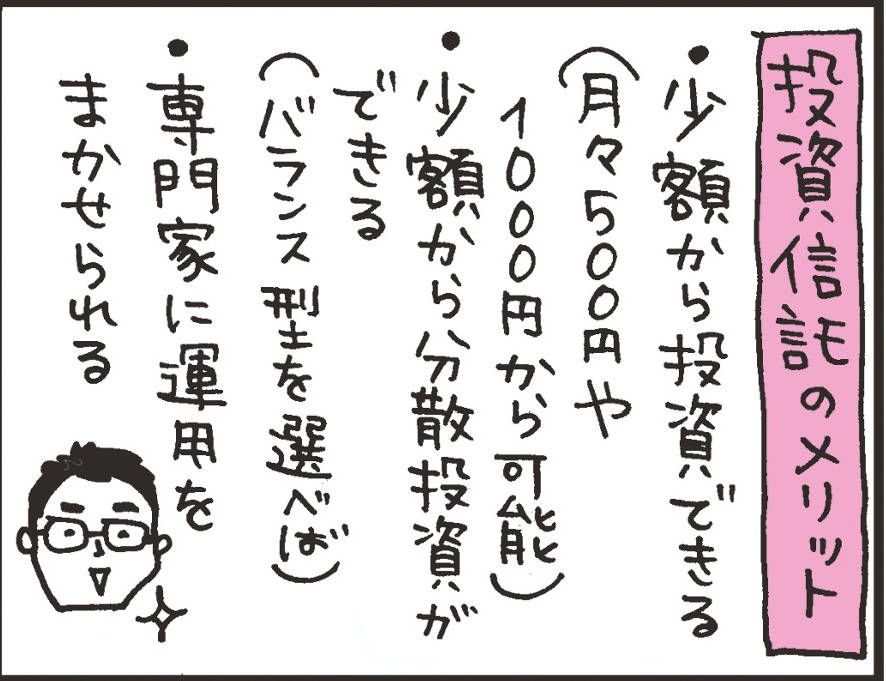 投資信託のメリット
・少額から投資できる
(月々500円や
1000円から可能)
・少額から分散投資が
できる
(バランス型を選べば)
・専門家に運用を
まかせられる